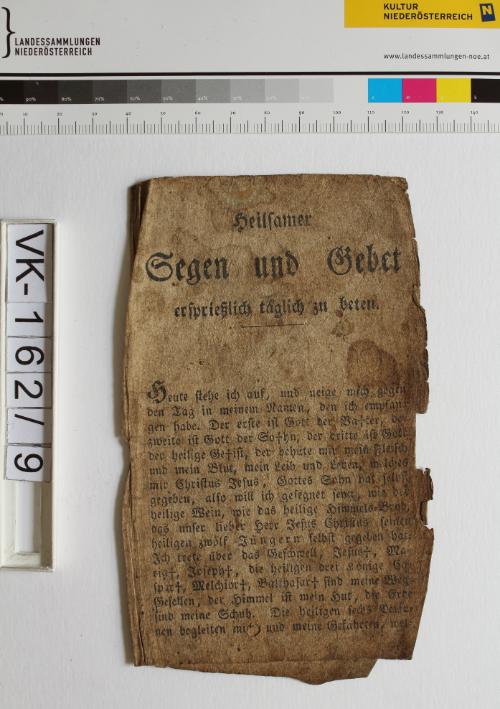 LANDESSAMMLUNGEN
NIEDERÖSTERREICH
KULTUR
NIEDERÖSTERREICH
www.landessammlungen-noe.at
VK-162/9
Heilſamer
Segen und Gebet
erſprießlich täglich zu beten.
Heute ſtehe ich auf, und neige mich gegen
den Tag in meinem Namen, den ich empfan-
gen habe. Der erſte iſt Gott der Va†ter, der
zweite iſt Gott der So†hn, der dritte iſt Gott
der heilige Ge†iſt, der behüte mir mein Fleiſch
und mein Blut, mein Leib und Leben, welches
mir Chriſtus Jeſus, Gottes Sohn hat ſelbſt
gegeben, alſo will ich geſegnet ſeyn, wie das
heilige Wein, wie das heilige Himmels-Brod,
das unſer lieber Herr Jeſus Chriſtus ſeinen
heiligen zwölf Jüngern ſelbſt gegeben hat.
Ich trete über das Geſchwell, Jeſus†, Ma-
ria†, Joſeph†, die heiligen drei Könige Ca-
ſpar†, Melchior†, Balthaſar† ſind meine Weg-
Geſellen, der Himmel iſt mein Hut, die Erde
ſind meine Schuh. Die heiligen ſechs
nen begleiten mich und meine Gefährten, wel-